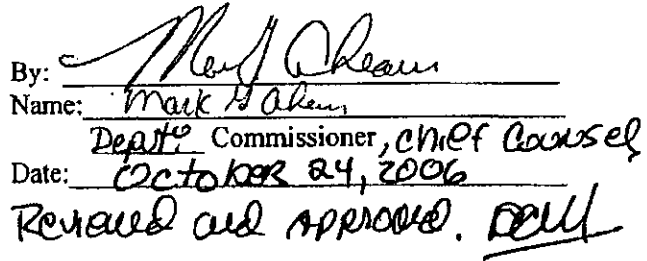 By: Mark J Ahearn
Name: Mark J Ahearn
Deputy Commissioner, Chief Counsel
Date: October 24, 2006
Reviewed and Approved.